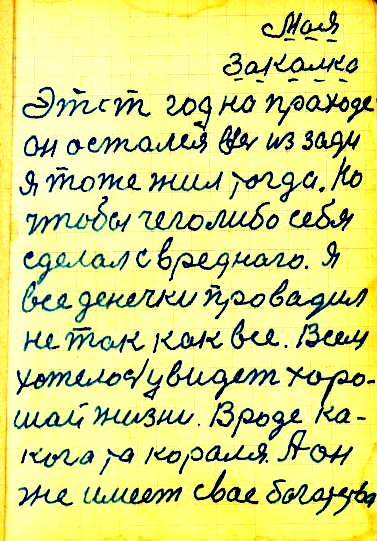 Мая
Закалка
Этст год на праходе
он осталей из зади
я тоже жил тогда. Но
чтобы чеголибо себя
сделал с вреднаго. Я
все денечки провадил
не так как все. Всем
хотелось увидет хоро-
шай жизни. Вроде ка-
кога та кораля. А он
же имеет свае богатства